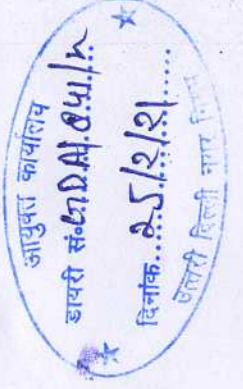 आयुक्त कार्यालय
डायरी सं०
दिनांक...25/2/21......
उत्तरी दिल्ली नगर निगम